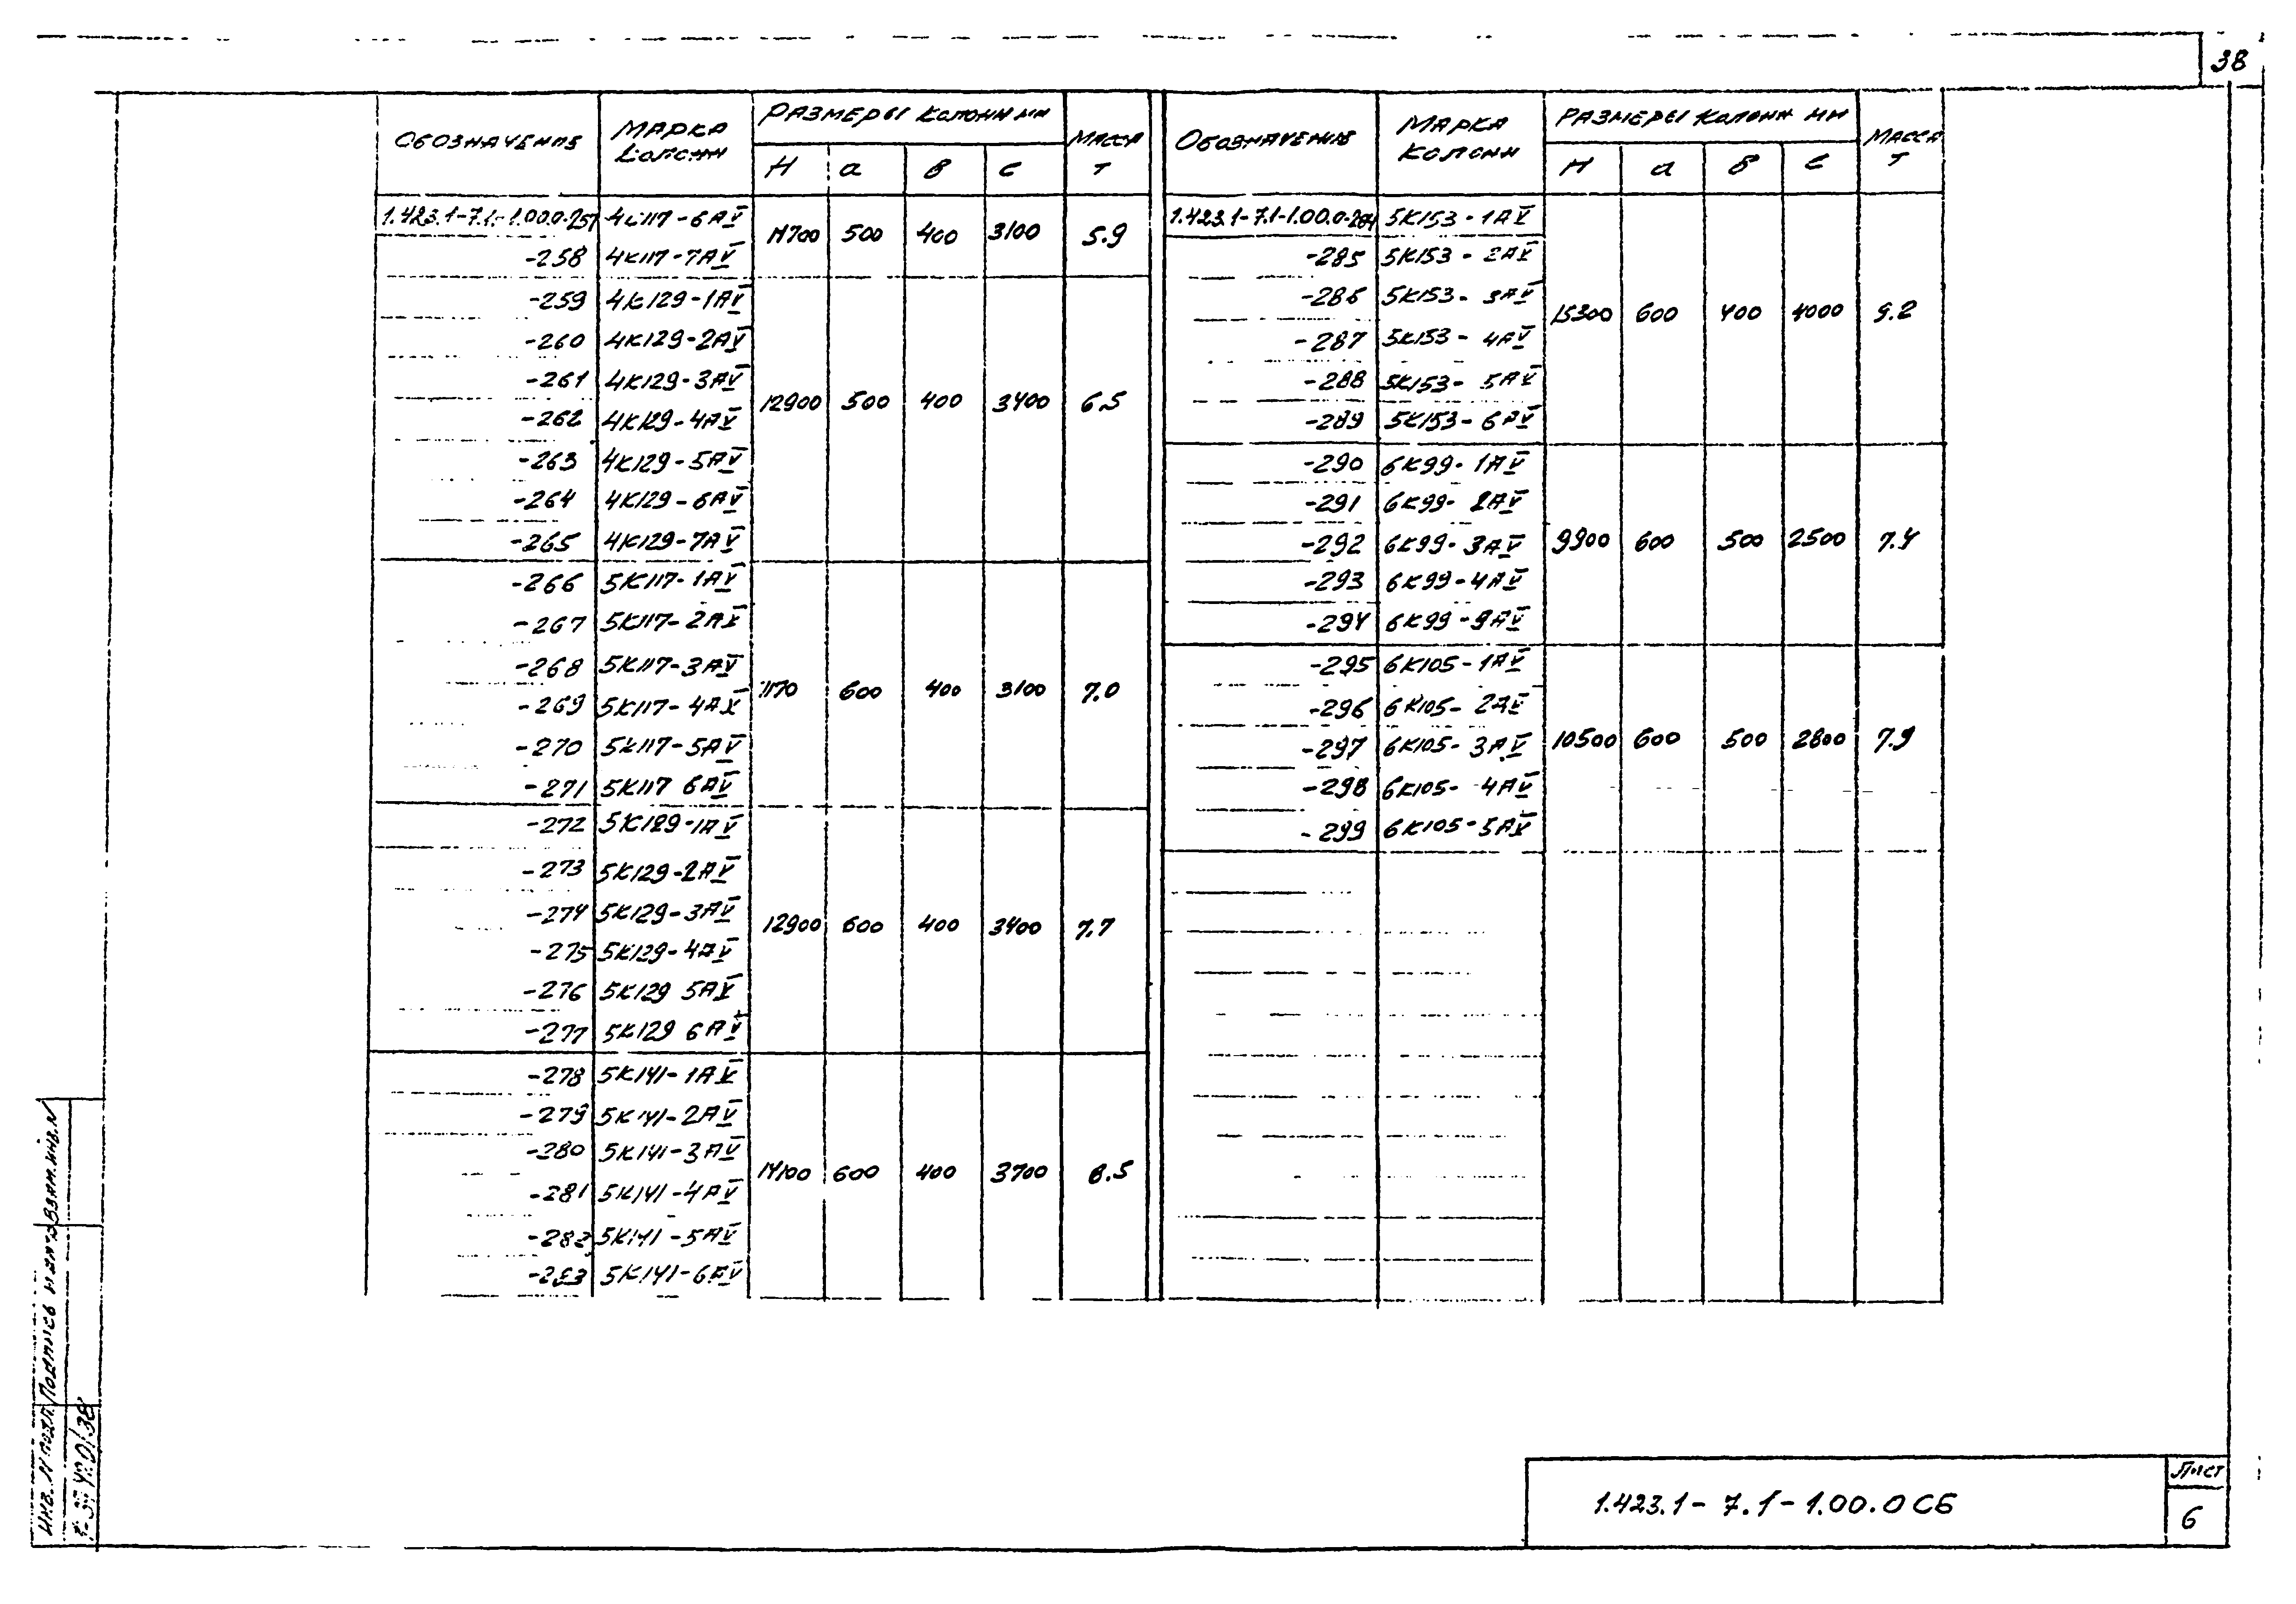 38
Обозначение Марка колонн Размеры колонн мм Масса т
H a в c
1.423.1-7.1-1.00.0-257 4К117-6АV 11700 500 400 3100 5.9
-258 4К117-7АV
-259 4К129-1АV
-260 4К129-2АV
-261 4К129-3АV
-262 4К129-4АV 12900 500 400 3400 6.5
-263 4К129-5АV
-264 4К129-6АV
-265 4К129-7АV
-266 5К117-1АV
-267 5К117-2АV
-268 5К117-3АV
-269 5К117-4АV 1170 600 400 3100 7.0
-270 5К117-5АV
-271 5К117 6АV
-272 5К129-1АV
-273 5К129-2АV
-274 5К129-3АV 12900 600 400 3400 7.7
-275 5К129-4АV
-276 5К129 5АV
-277 5К129 6АV
-278 5К141-1АV
-279 5К141-2АV
-280 5К141-3АV 14100 600 400 3700 8.5
-281 5К141-4АV
-282 5К141-5АV
-283 5К141-6АV
Обозначение Марка колонн Размеры колонн мм Масса т
H a в c
1.423.1-7.1-1.00.0-284 5К153-1АV
-285 5К153-2АV
-286 5К153-3АV 15300 600 400 4000 9.2
-287 5К153-4АV
-288 5К153-5АV
-289 5К153-6АV
-290 6К99-1АV
-291 6К99-2АV
-292 6К99-3АV 9900 600 500 2500 7.4
-293 6К99-4АV
-294 6К99-9АV
-295 6К105-1АV
-296 6К105-2АV
-297 6К105-3АV 10500 600 500 2800 7.9
-298 6К105-4АV
-299 6К105-5АV
Инв. N подл. Подпись и дата Взам.инв.N
1.423.1-7.1-1.00.0СБ
Лист
6